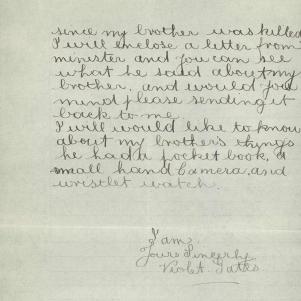 since my brother was killed
I will enclose a letter from
minister and you can see
what he said about my
brother. and would you
mind please sending it
back to me.
I will would like to know
about my brother's things
he had a pocket book, a
small hand Camera, and
wristlet watch.
I am.
Yours Sincerely
Violet.